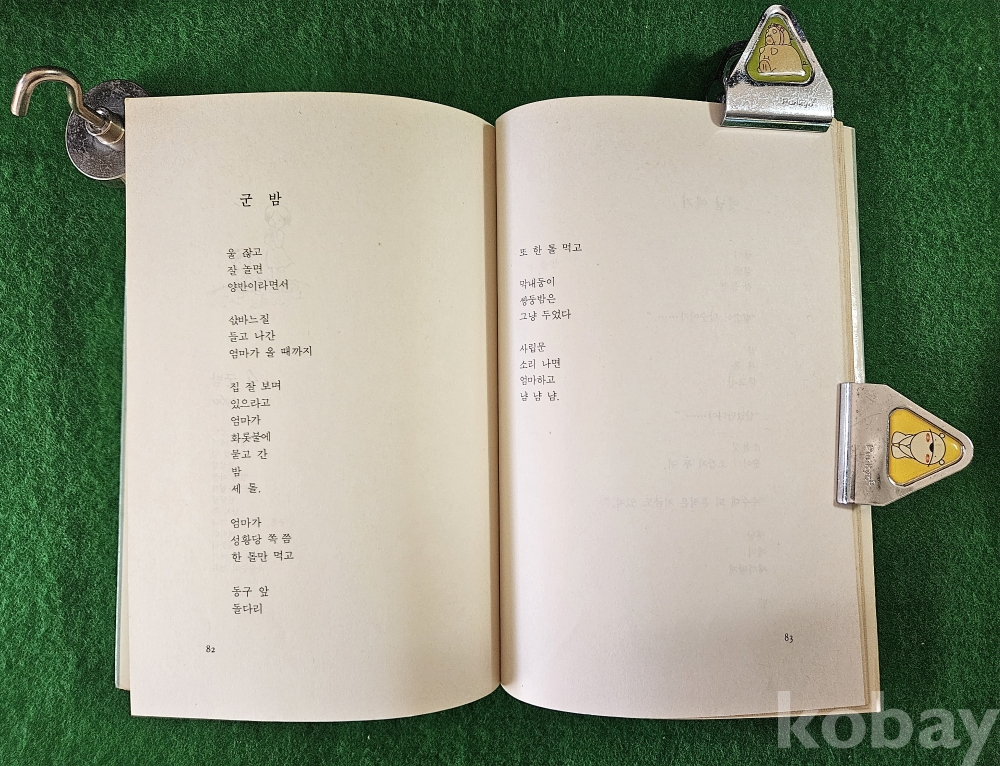 군 밤
울 잖고
잘 놀면
양반이라면서
삯바느질
들고 나간
엄마가 올 때까지
집 잘 보며
있으라고
엄마가
화롯불에
묻고 간
밤
세 톨.
엄마가
성황당 쪽 쯤
한 톨만 먹고
동구 앞
돌다리
82
또 한 톨 먹고
막내둥이
쌍둥밤은
그냥 두었다
사립문
소리 나면
엄마하고
냠 냠 냠.
83
kobay